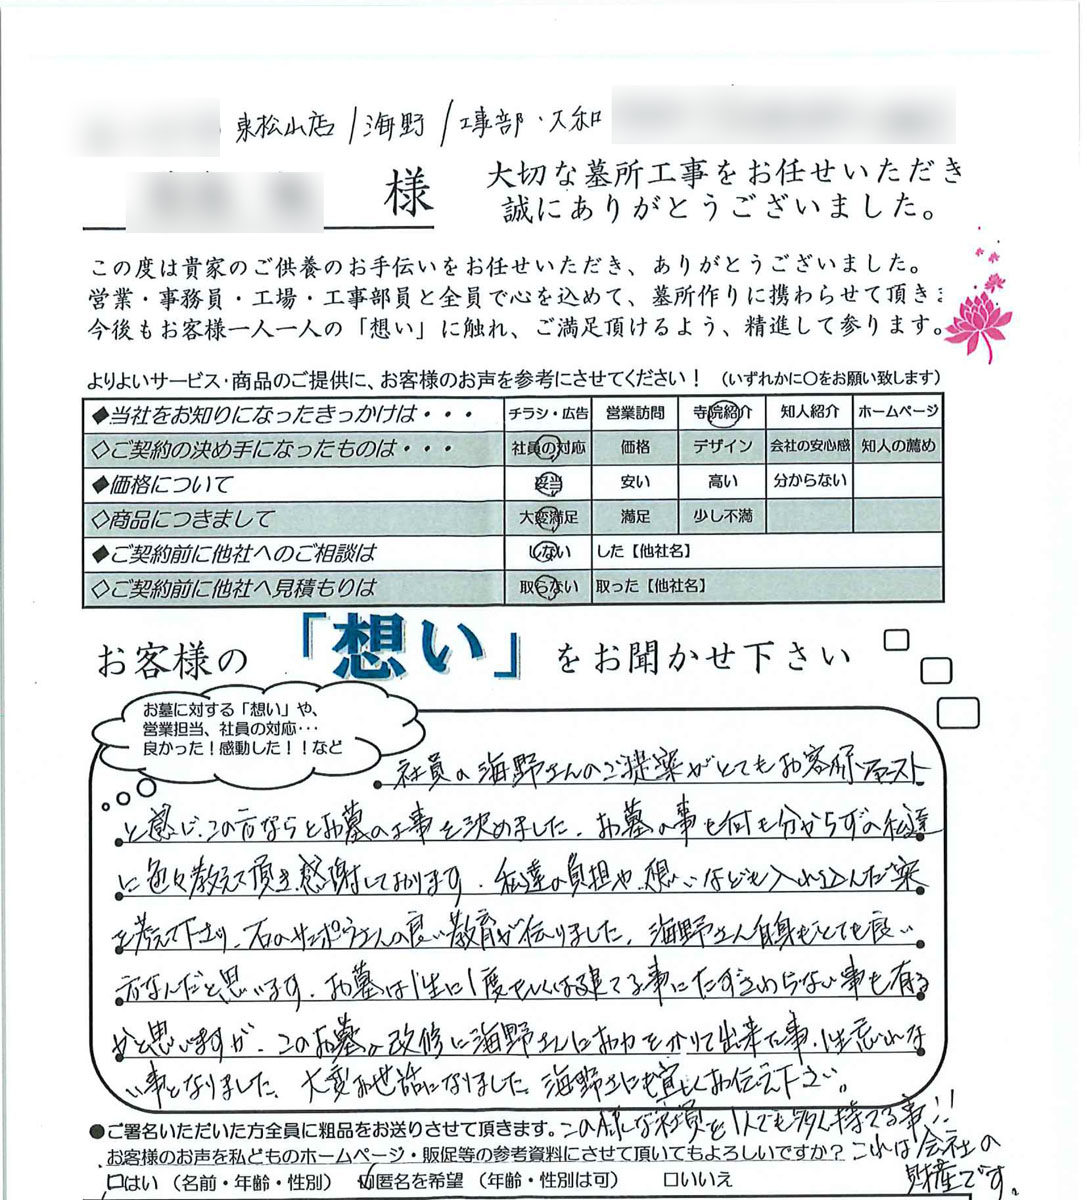 東松山店/海野/工事部・大和
様
大切な墓所工事をお任せいただき
誠にありがとうございました。
この度は貴家のご供養のお手伝いをお任せいただき、ありがとうございました。
営業・事務員・工場・工事部員と全員で心を込めて、墓所作りに携わらせて頂きま
今後もお客様一人一人の「想い」に触れ、ご満足頂けるよう、精進して参ります。
よりよいサービス・商品のご提供に、お客様のお声を参考にさせてください！ （いずれかに〇をお願い致します）
◆当社をお知りになったきっかけは・・・ チラシ・広告 営業訪問 寺院紹介 知人紹介 ホームページ
◇ご契約の決め手になったものは・・・ 社員の対応 価格 デザイン 会社の安心感 知人の薦め
◆価格について 妥当 安い 高い 分からない
◇商品につきまして 大変満足 満足 少し不満
◆ご契約前に他社へのご相談は しない した【他社名】
◇ご契約前に他社へ見積もりは 取らない 取った【他社名】
お客様の「想い」をお聞かせ下さい
お墓に対する「想い」や、
営業担当、社員の対応・・・
良かった！感動した！！など
社員の海野さんのご提案がとてもお客様ファースト
と感じ、この方ならとお墓の工事を決めました。お墓の事も何も分からずの私達
に色々教えて頂き感謝しております。私達の負担や、想いなども入れ込んだ案
を考えて下さり、石のサンポウさんの良い教育が伝りました。海野さん自身もとても良い
方なんだと思います。お墓は1生に1度もしくは建てる事にたずさわらない事も有る
かと思いますが、このお墓の改修に海野さんにお力をかりて出来た事、1生忘れな
い事となりました。大変お世話になりました。海野さんにも宜しくお伝え下さい。
この様な社員を1人でも多く持てる事!!
これは会社の
財産です。
●ご署名いただいた方全員に粗品をお送りさせて頂きます。
お客様のお声を私どものホームページ・販促等の参考資料にさせて頂いてもよろしいですか？
□はい （名前・年齢・性別） □匿名を希望 （年齢・性別は可） □いいえ